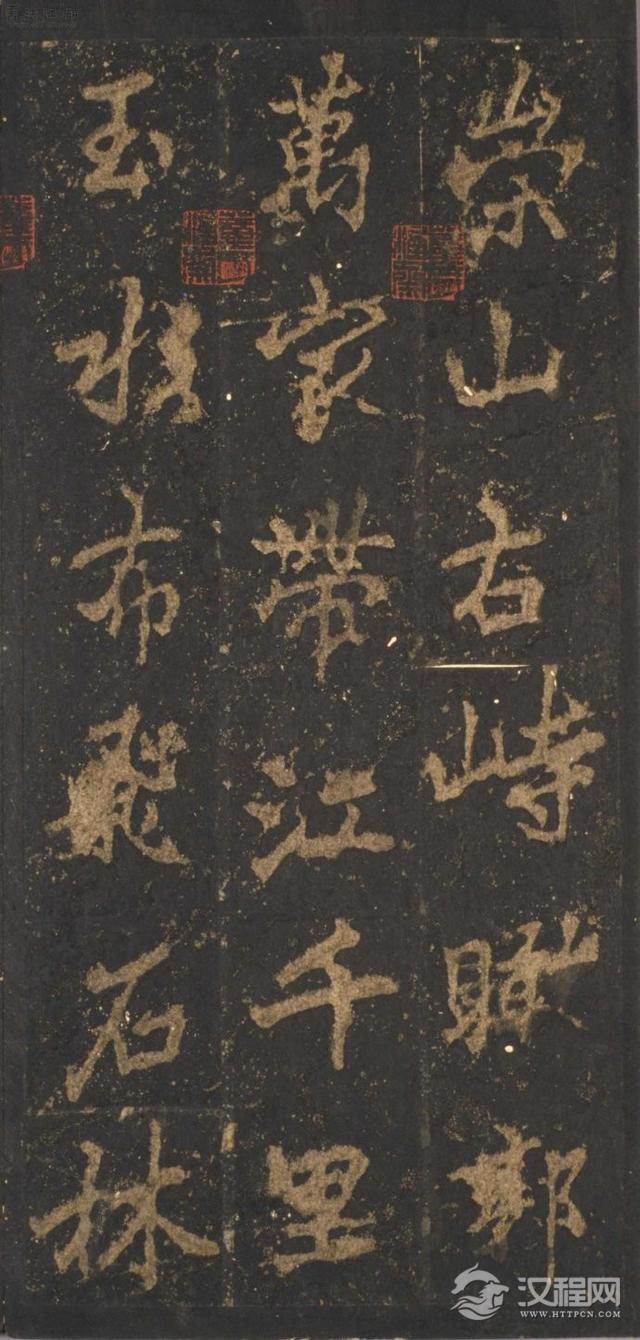 崇山右峙瞰郭
萬家帶江千里
玉水布飛石林
汉程网
WWW.HTTPCN.COM